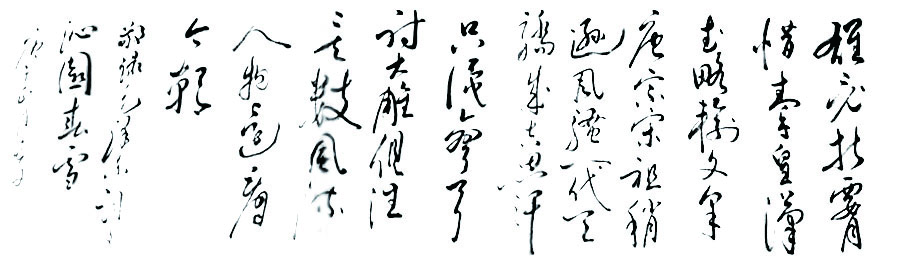 雄竞折腰
惜秦皇漢
武略输文采
唐宗宋祖稍
逊风骚一代天
骄成吉思汗
只识弯弓
射大雕俱往
矣数风流
人物还看
今朝
录毛泽东词
沁園春雪